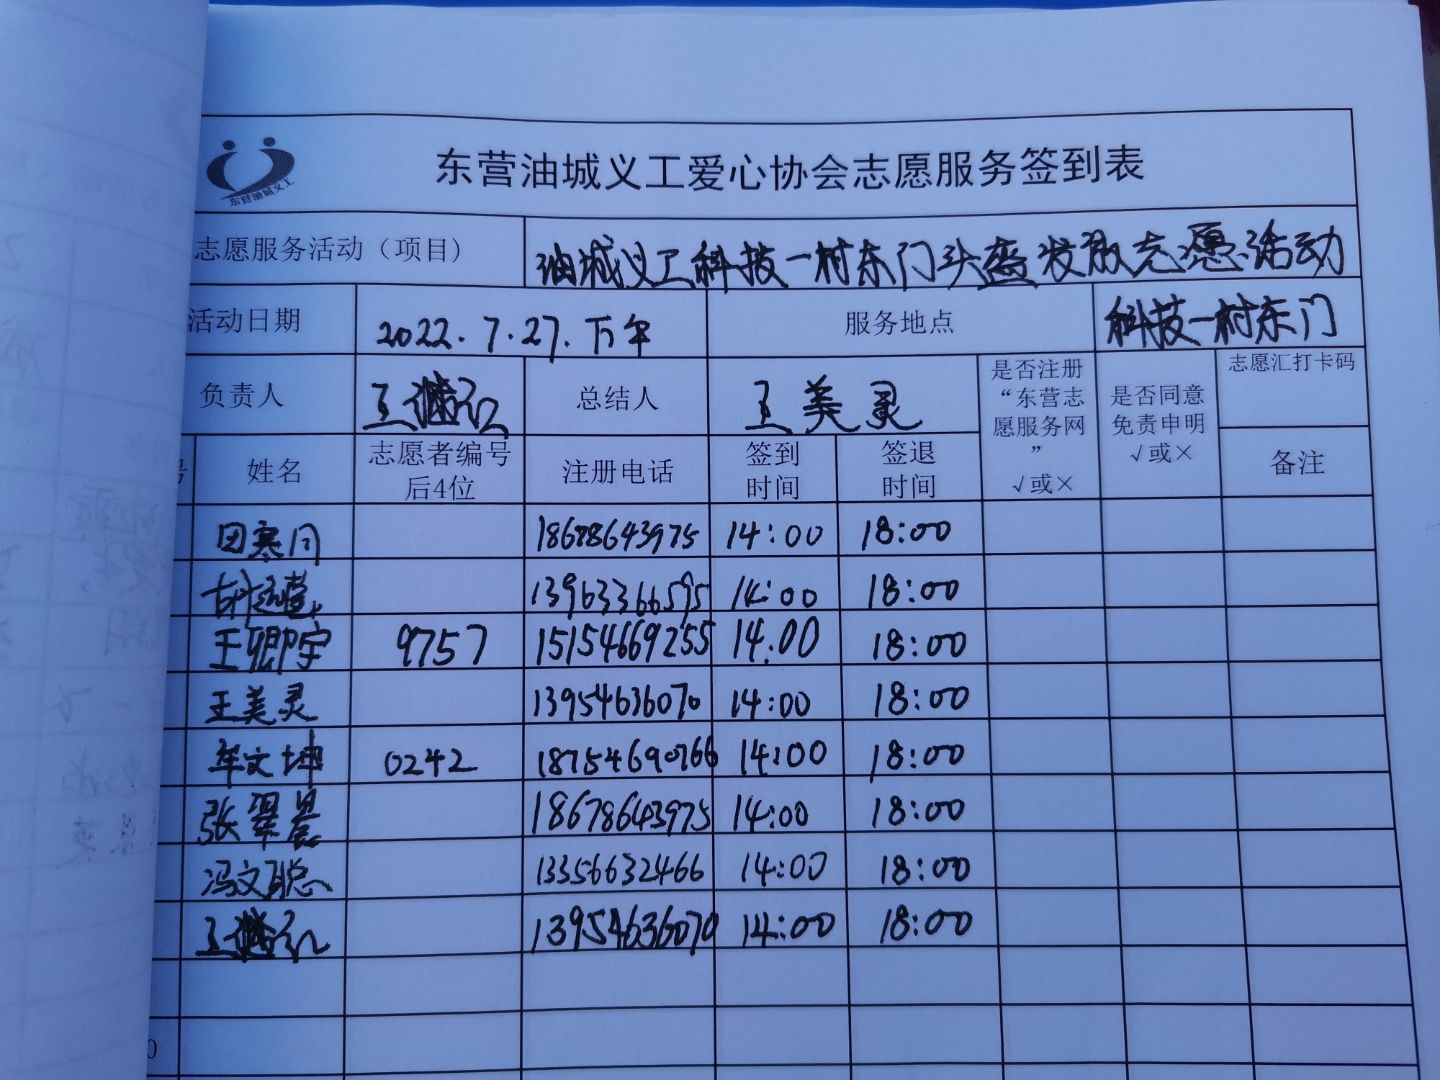 东营油城义工
东营油城义工爱心协会志愿服务签到表
志愿服务活动（项目) 油城义工科技一村东门头盔发放志愿活动
活动日期 2022.7.27.下午 服务地点 科技一村东门
负责人 总结人 王美灵 是否注册“东营志愿服务网” √或× 是否同意免责申明 √或× 志愿汇打卡码
号 姓名 志愿者编号后4位 注册电话 签到时间 签退时间 备注
田寒月 18678643975 14:00 18:00
胡 13963366595 14:00 18:00
王卿宇 9757 15154669255 14:00 18:00
王美灵 13954636070 14:00 18:00
牟文坤 0242 18754690766 14:00 18:00
张翠晨 18678643975 14:00 18:00
冯文聪 13356632466 14:00 18:00
王 13954636070 14:00 18:00
0